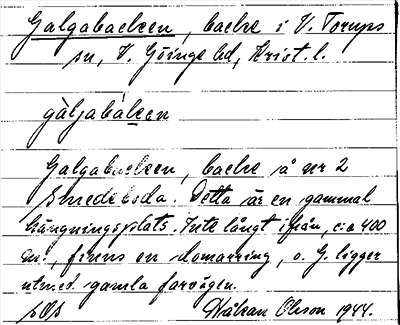 Galgabacken, backe i V. Torups
sn, V. Göinge hd, Krist. l.
gàljabákan
Galgabacken, backe å nr 2
Smedeboda. Detta är en gammal
hängningsplats. Inte långt ifrån, c:a 400
m., finns en domarring, o. G. ligger
utmed gamla farvägen.
Håkan Olsson 1944.